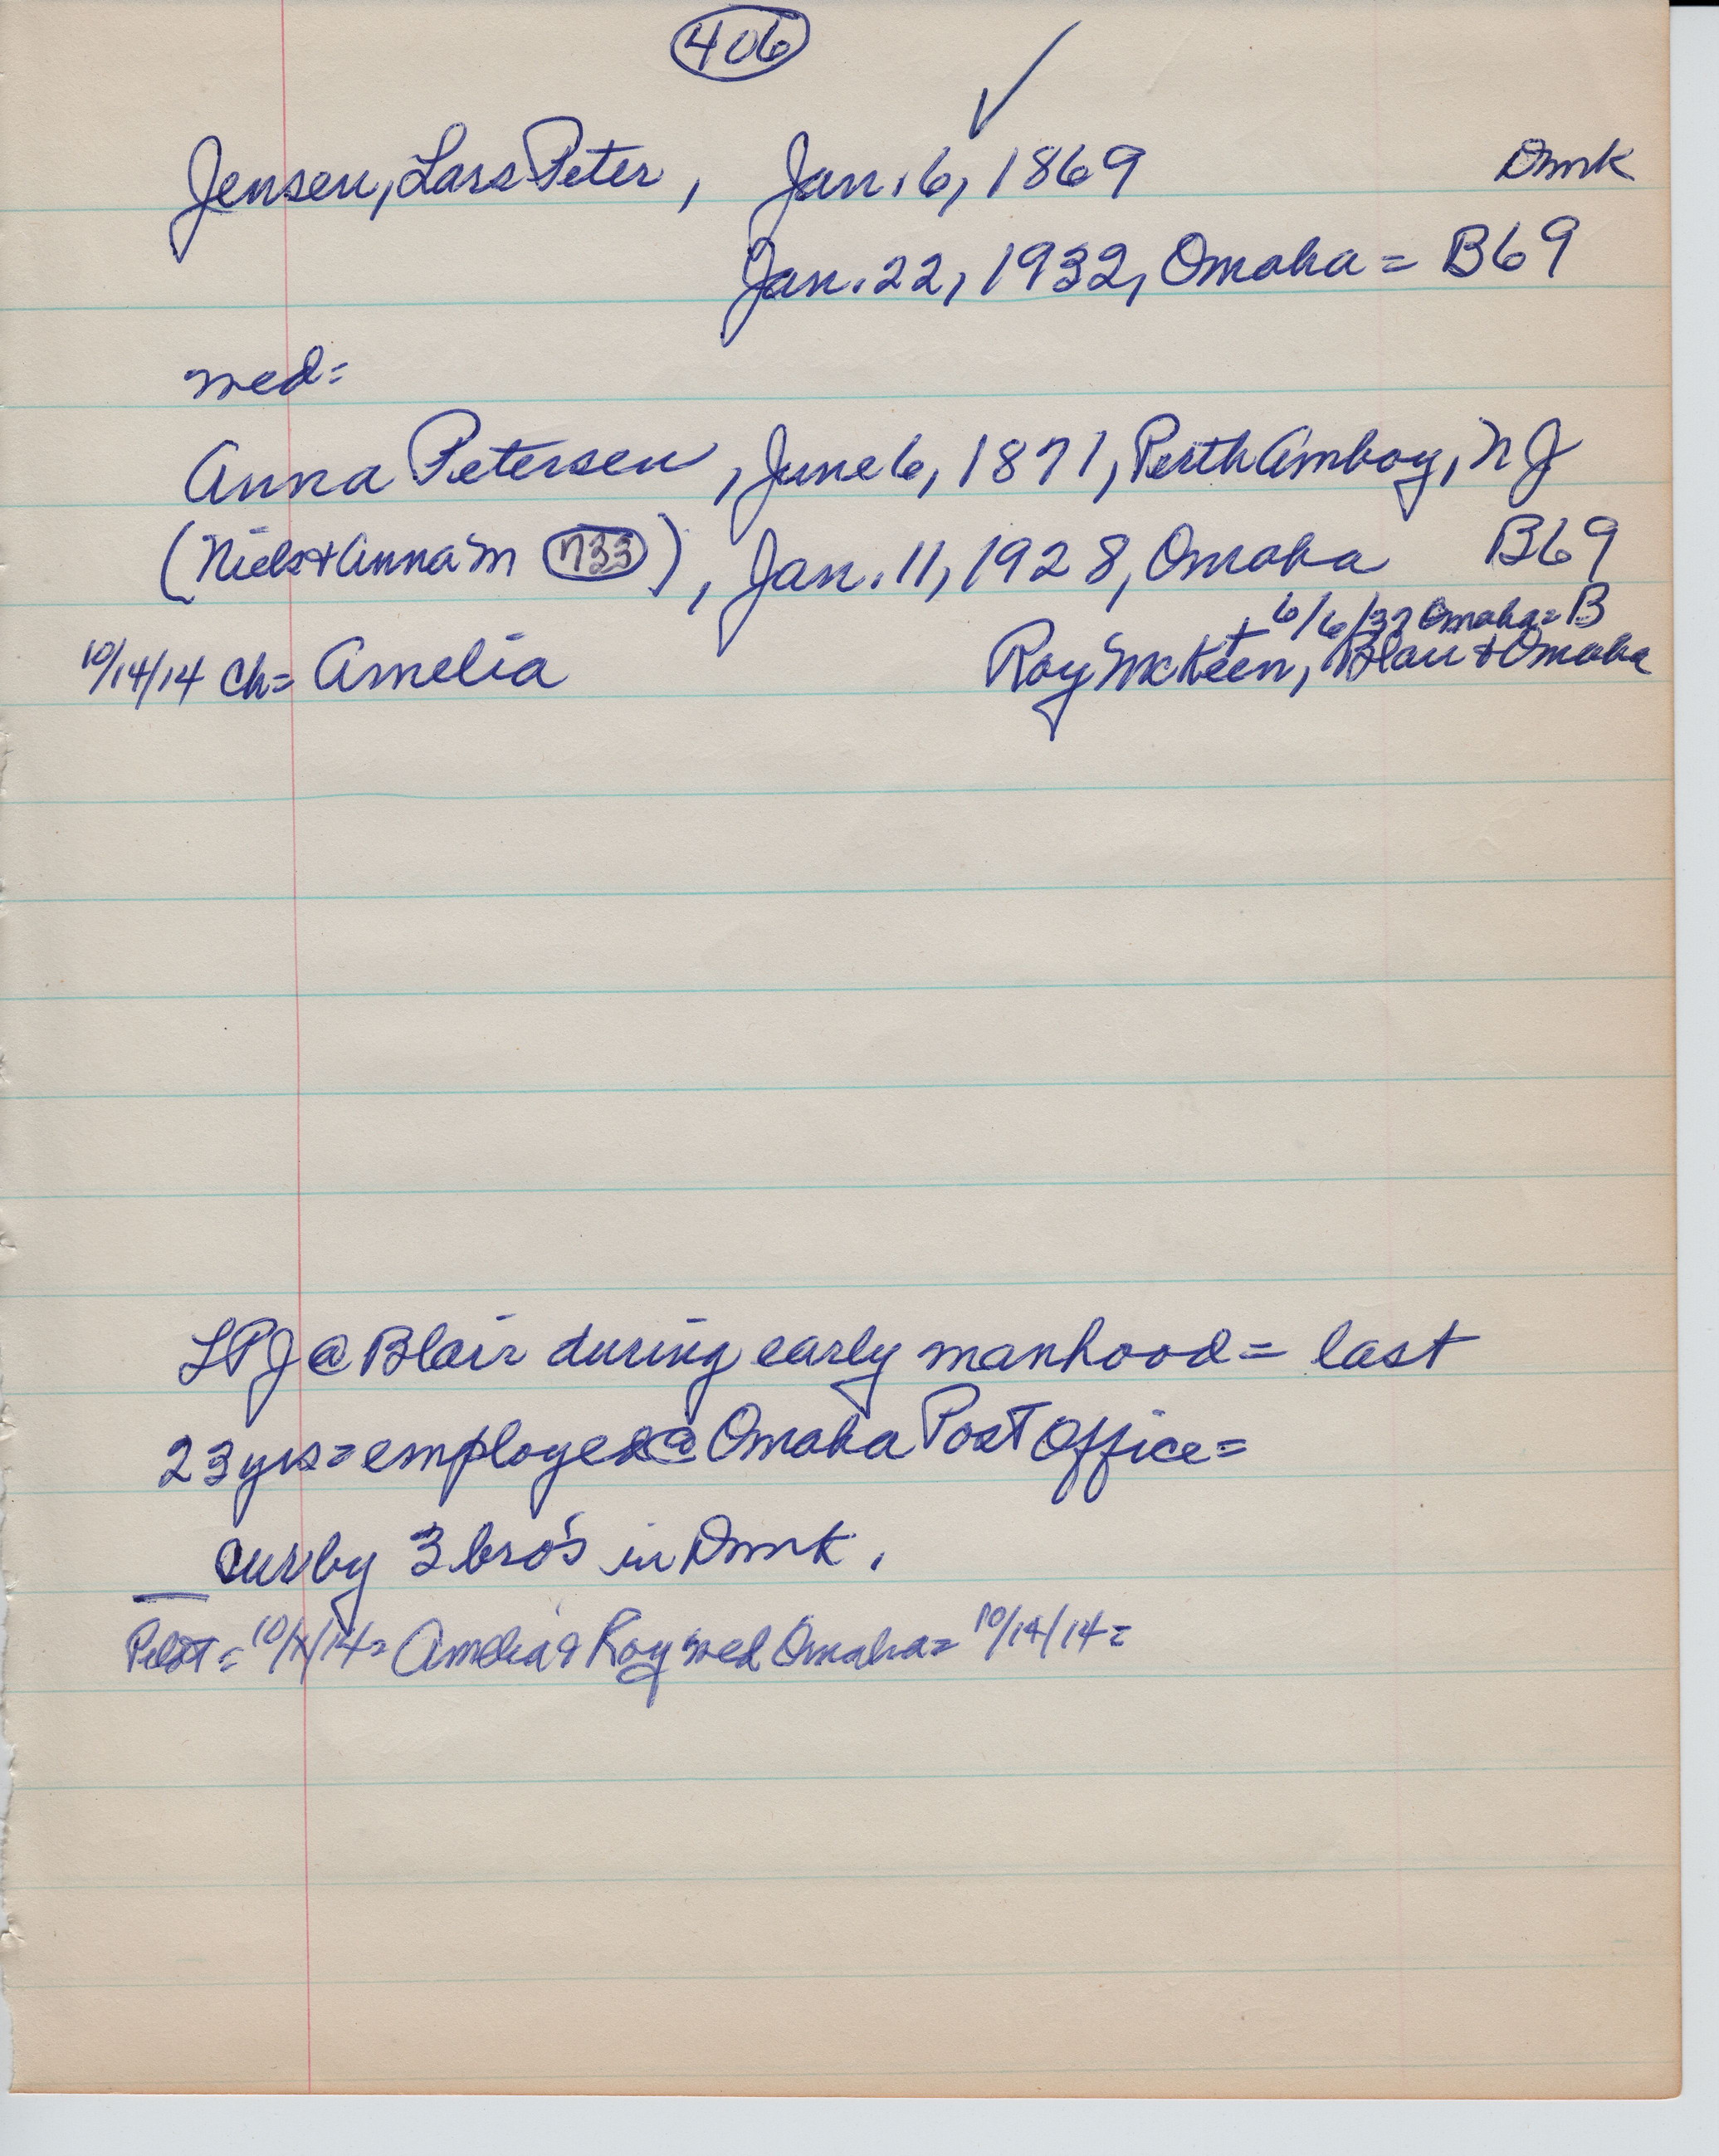 406
✓
Jensen, Lars Peter, Jan. 6, 1869 Dmrk
Jan. 22, 1932, Omaha = B69
wed=
Anna Petersen, June 6, 1871, Perth Amboy, NJ
(Niels + Anna M 733), Jan. 11, 1928, Omaha B69
+ 6/6/32 Omaha = B
10/14/14 Ch= Amelia Roy McKeen, Blair & Omaha
LPJ @ Blair during early manhood = last
23 yrs = employed @ Omaha Post Office =
surby 3 bro's in Dmrk.
= Amelia & Roy wed Omaha = 10/14/14 =